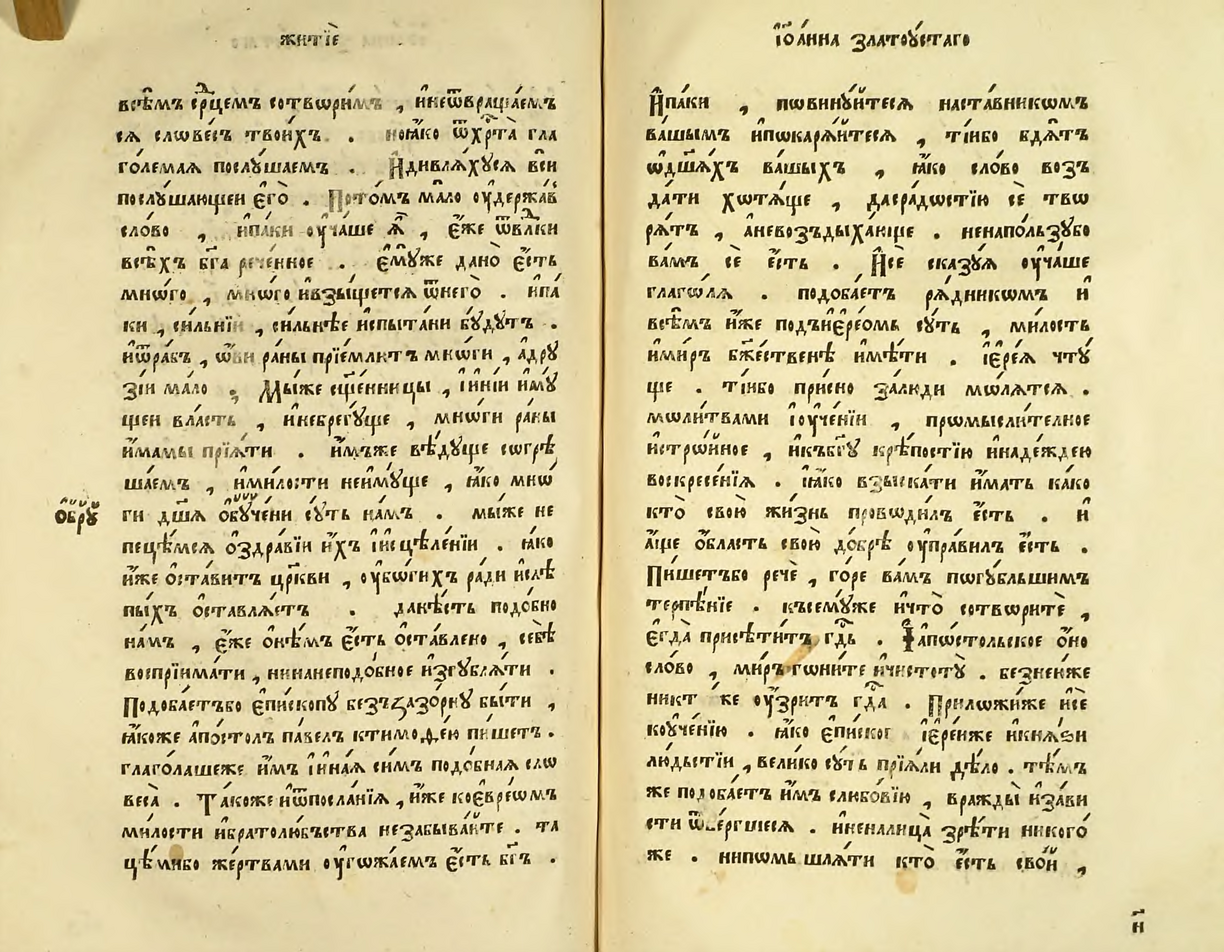 житїѐ
всѣ́мъ ср҃цемъ сотвори́мъ , и҆неѿвраща́емъ
сѧ словѐсъ твои́хъ . ноꙗ҆́ко ѿхр҃та̀ гла
го́лемаѧ послꙋ́шаемъ . И҆дивлѧ́хꙋсѧ всѝ
послꙋ́шающеи є҆го̀ . Пото́мъ ма́ло ѹ҆держа́в
сло́во , и҆па́ки ѹ҆ча́ше ѧ҆̀ , є҆́же ѿвл҃ки
всѣ́хъ бг҃а рече́нное . є҆мꙋ́же дано̀ є҆́сть
мно́гѡ , мно́гѡ и҆взы́щетсѧ ѿнего̀ . и҆па́
ки , си́льнїи , си́льнѣе и҆спыта́ни бꙋ́дꙋтъ .
и҆ѿра́бъ , ѡ҆́ви ра́ны прїе́млютъ мнѡ́ги , а҆дрꙋ
зі́и ма́ло . Мы́же сщ҃е́нницы , і҆и҆ні́и и҆мꙋ́
щеи вла́сть , и҆небрегꙋ́ще , мнѡ́ги ра́ны
и҆́мамы прїѧ́ти . и҆́мъже вѣ́дꙋще согрѣ
ша́емъ , и҆ми́лости неи҆мꙋ́ще , ꙗ҆́ко мнѡ́
ги дш҃ѧ ѻ҆бꙋ́чени сꙋ́ть на́мъ . мы́же не
пеце́мсѧ ѻ҆здра́вїи и҆́хъ і҆и҆сцѣле́нїи . ꙗ҆́ко
и҆́же ѻ҆ста́витъ цр҃кви , ѹ҆бо́гихъ ра́ди и҆слѣ
пы́хъ ѻ҆ставлѧ́етъ . дане́сть подо́бно
на́мъ , є҆́же ѻ҆нѣ́мъ є҆́сть ѻ҆ста́влено , себѣ̀
воспрїима́ти , нинанеподо́бное и҆згꙋблѧ́ти .
Подоба́етъбо є҆пи́скопꙋ безъꙁазо́рнꙋ бы́ти ,
ꙗ҆́коже а҆по́столъ па́велъ ктимоѳе́ю пи́шетъ .
глаго́лашеже и҆́мъ і҆и҆на́ѧ си́мъ подо́бнаѧ сло
веса̀ . Та́коже и҆ѿпосла́нїѧ , и҆́же коє҆вре́ѡмъ
ми́лости и҆братолю́бьства незабыва́йте . та
цѣ́мибо же́ртвами ѹ҆гожа́емъ є҆́сть бг҃ъ .
ѻ҆брꙋ
і҆ѻа́нна златоꙋ́стаго
И҆па́ки , повинꙋ́йтесѧ наста́вникѡмъ
ва́шымъ и҆покарѧ́йтесѧ , ті́ибо бдѧ́тъ
ѡ҆дш҃а́хъ ва́шыхъ , ꙗ҆́ко сло́во возъ
да́ти хотѧ́ще , дасра́достїю се́ тво
рѧ́тъ , а҆невозъдыха́юще . ненапо́льзꙋбо
ва́мъ се́ є҆́сть . И҆сѐ ска́зꙋѧ ѹ҆ча́ше
глаго́лѧ . подоба́етъ рѧ́дникѡмъ и҆
всѣ́мъ и҆́же подъиє҆ре́омь сꙋ́ть , ми́лость
и҆ми́ръ бж҃е́ственѣ и҆мѣ́ти . і҆єре́ѧ чтꙋ́
ще . ті́ибо при́сно залю́ди мо́лѧтсѧ .
моли́твами і҆ѹ҆че́нїи , промысли́телное
и҆стро́йное , и҆къбг҃ꙋ крѣ́постїю и҆наде́ждею
воскресе́нїѧ . ꙗ҆́ко взыска́ти и҆́мать ка́ко
кто̀ свою̀ жи́знь прово́дилъ є҆́сть . и҆
а҆́ще ѻ҆́бласть свою̀ до́брѣ ѹ҆пра́вилъ є҆́сть .
Пи́шетъбо речѐ , го́ре ва́мъ погꙋ́бльшимъ
терпѣ́нїе . къ́семꙋже и҆что̀ сотвори́те ,
є҆гда̀ присѣти́тъ гд҃ь . І҆апо́стольское ѻ҆но
сло́во , ми́ръ гони́те и҆чистотꙋ̀ . безне́иже
ѹ҆́зритъ гд҃а . Приложи́же и҆сѐ
коѹ҆че́нїю . ꙗ҆́ко і҆єре́иже и҆кнѧ́ѕи
лю́дьстїи , вели́ко сꙋ́ть прїѧ́ли дѣ́ло . тѣ́мъ
же подоба́етъ и҆́мъ слюбо́вїю , вражды̀ и҆за́ви
сти . и҆неналица̀ зрѣ́ти никого́
же . нипомышлѧ́ти кто̀ є҆́сть сво́й ,
и҃